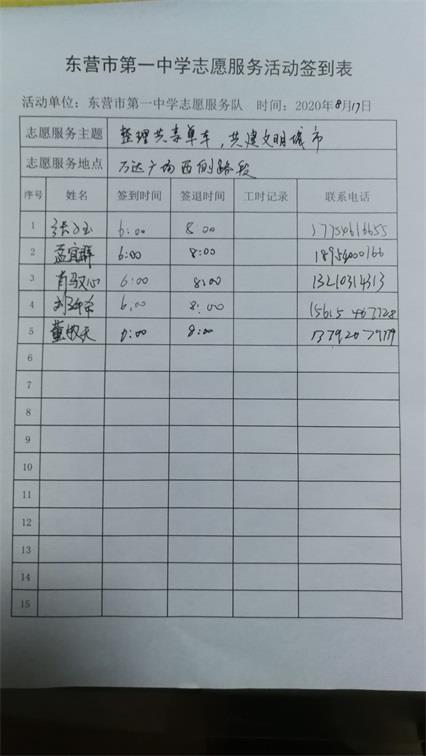 东营市第一中学志愿服务活动签到表
活动单位：东营市第一中学志愿服务队 时间：2020年8月17日
志愿服务主题 整理共享单车，共建文明城市
志愿服务地点 万达广场西侧路段
序号 姓名 签到时间 签退时间 工时记录 联系电话
1 6:00 8:00 17754616655
2 孟宜群 6:00 8:00
3 肖驭心 6:00 8:00 13210314313
4 6:00 8:00
5 6:00 8:00
6
7
8
9
10
11
12
13
14
15